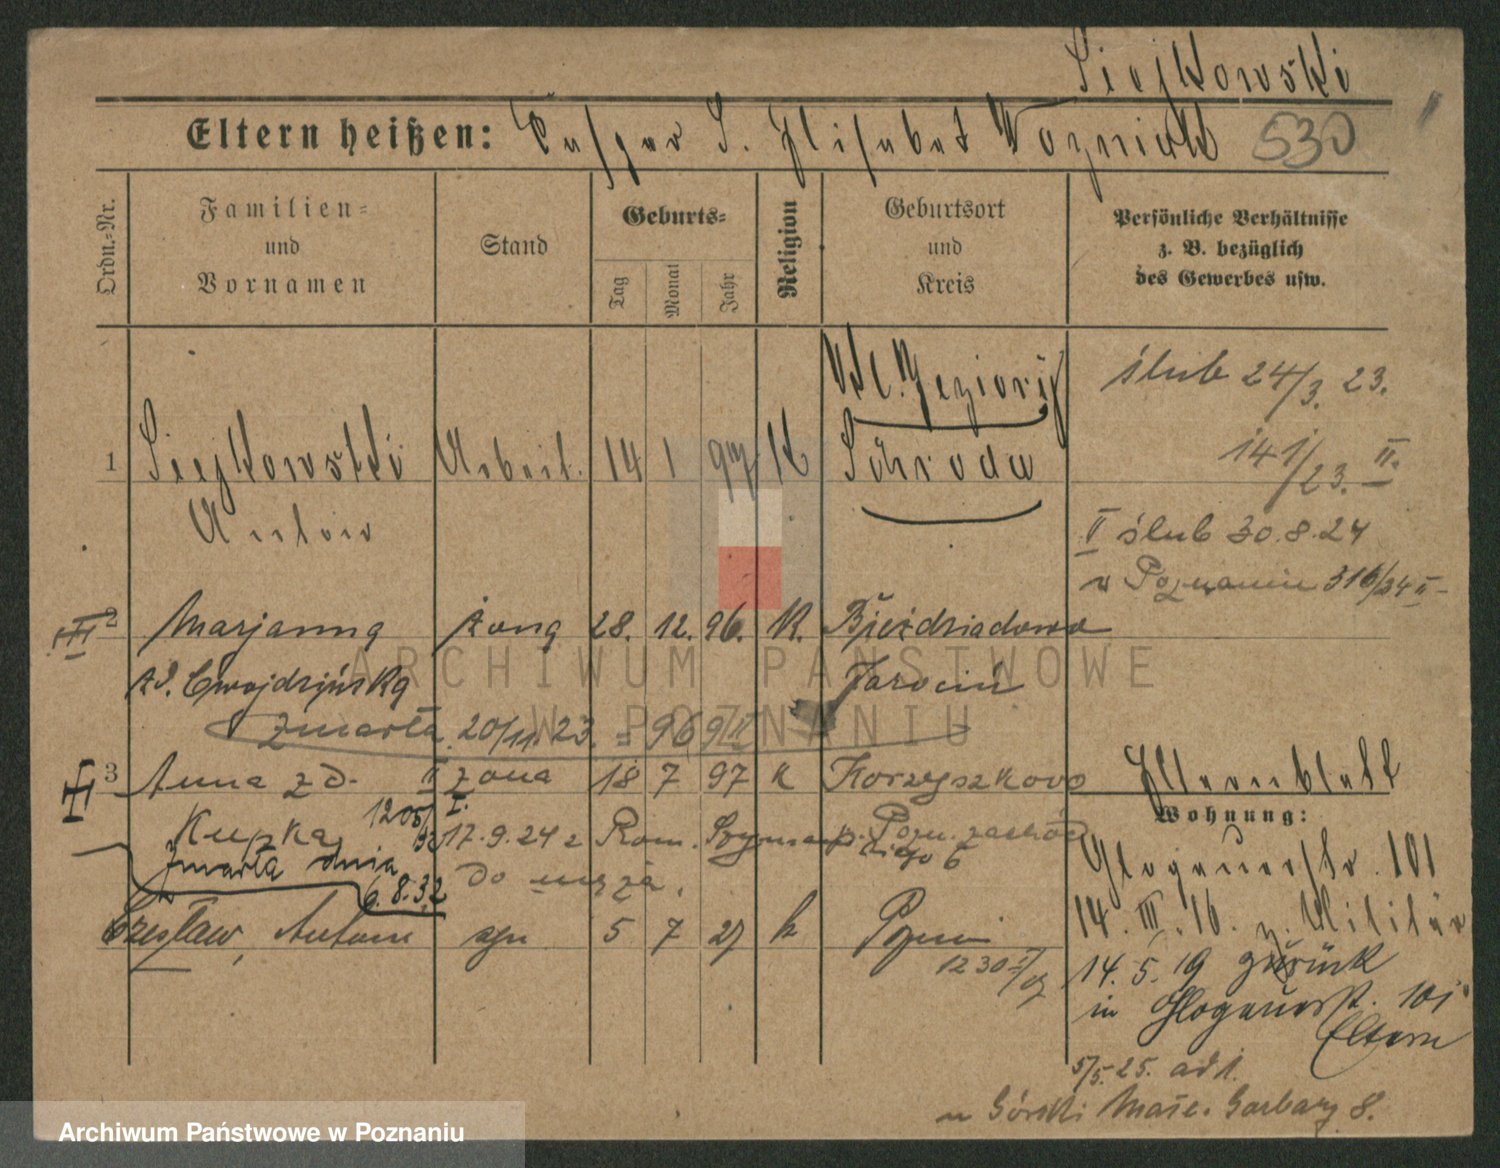 Siejkowski
Eltern heißen: Kasper S. Elisabet Wozniak 530
Ordn.-Nr.
Familien-
und
Vornamen
Stand
Geburts-
Tag
Monat
Jahr
Religion
Geburtsort
und
Kreis
Persönliche Verhältnisse
z. B. bezüglich
des Gewerbes usw.
ślub 24/3. 23.
1 Siejkowski Arbeit. 14 1 97 K
Schroda
141/23. II.
Anton
II ślub 30.8.24
w Poznaniu 316/24 II
2 Marjanna żona 28. 12. 96. K. Bieździadowo
zd. Cwojdzińska Jarocin
zmarła 20/11. 23.
3 Anna zd. II żona 18 7 97 K Korzyszkowo
Elternblatt
Wohnung:
Kupka
17.9.24 z Rom. Szymańskiego 6
zmarła dnia
6.8.32
do męża.
Glogauerstr. 101
14. III. 16. z. Militär
Czesław, Antoni syn 5 7 27 k Poznań
1230
14. 5. 19 zurück
in Glogauerstr. 101
Eltern
5/5. 25. ad 1.
u Górski Małe. Garbary 8.
ARCHIWUM PAŃSTWOWE
W POZNANIU
Archiwum Państwowe w Poznaniu